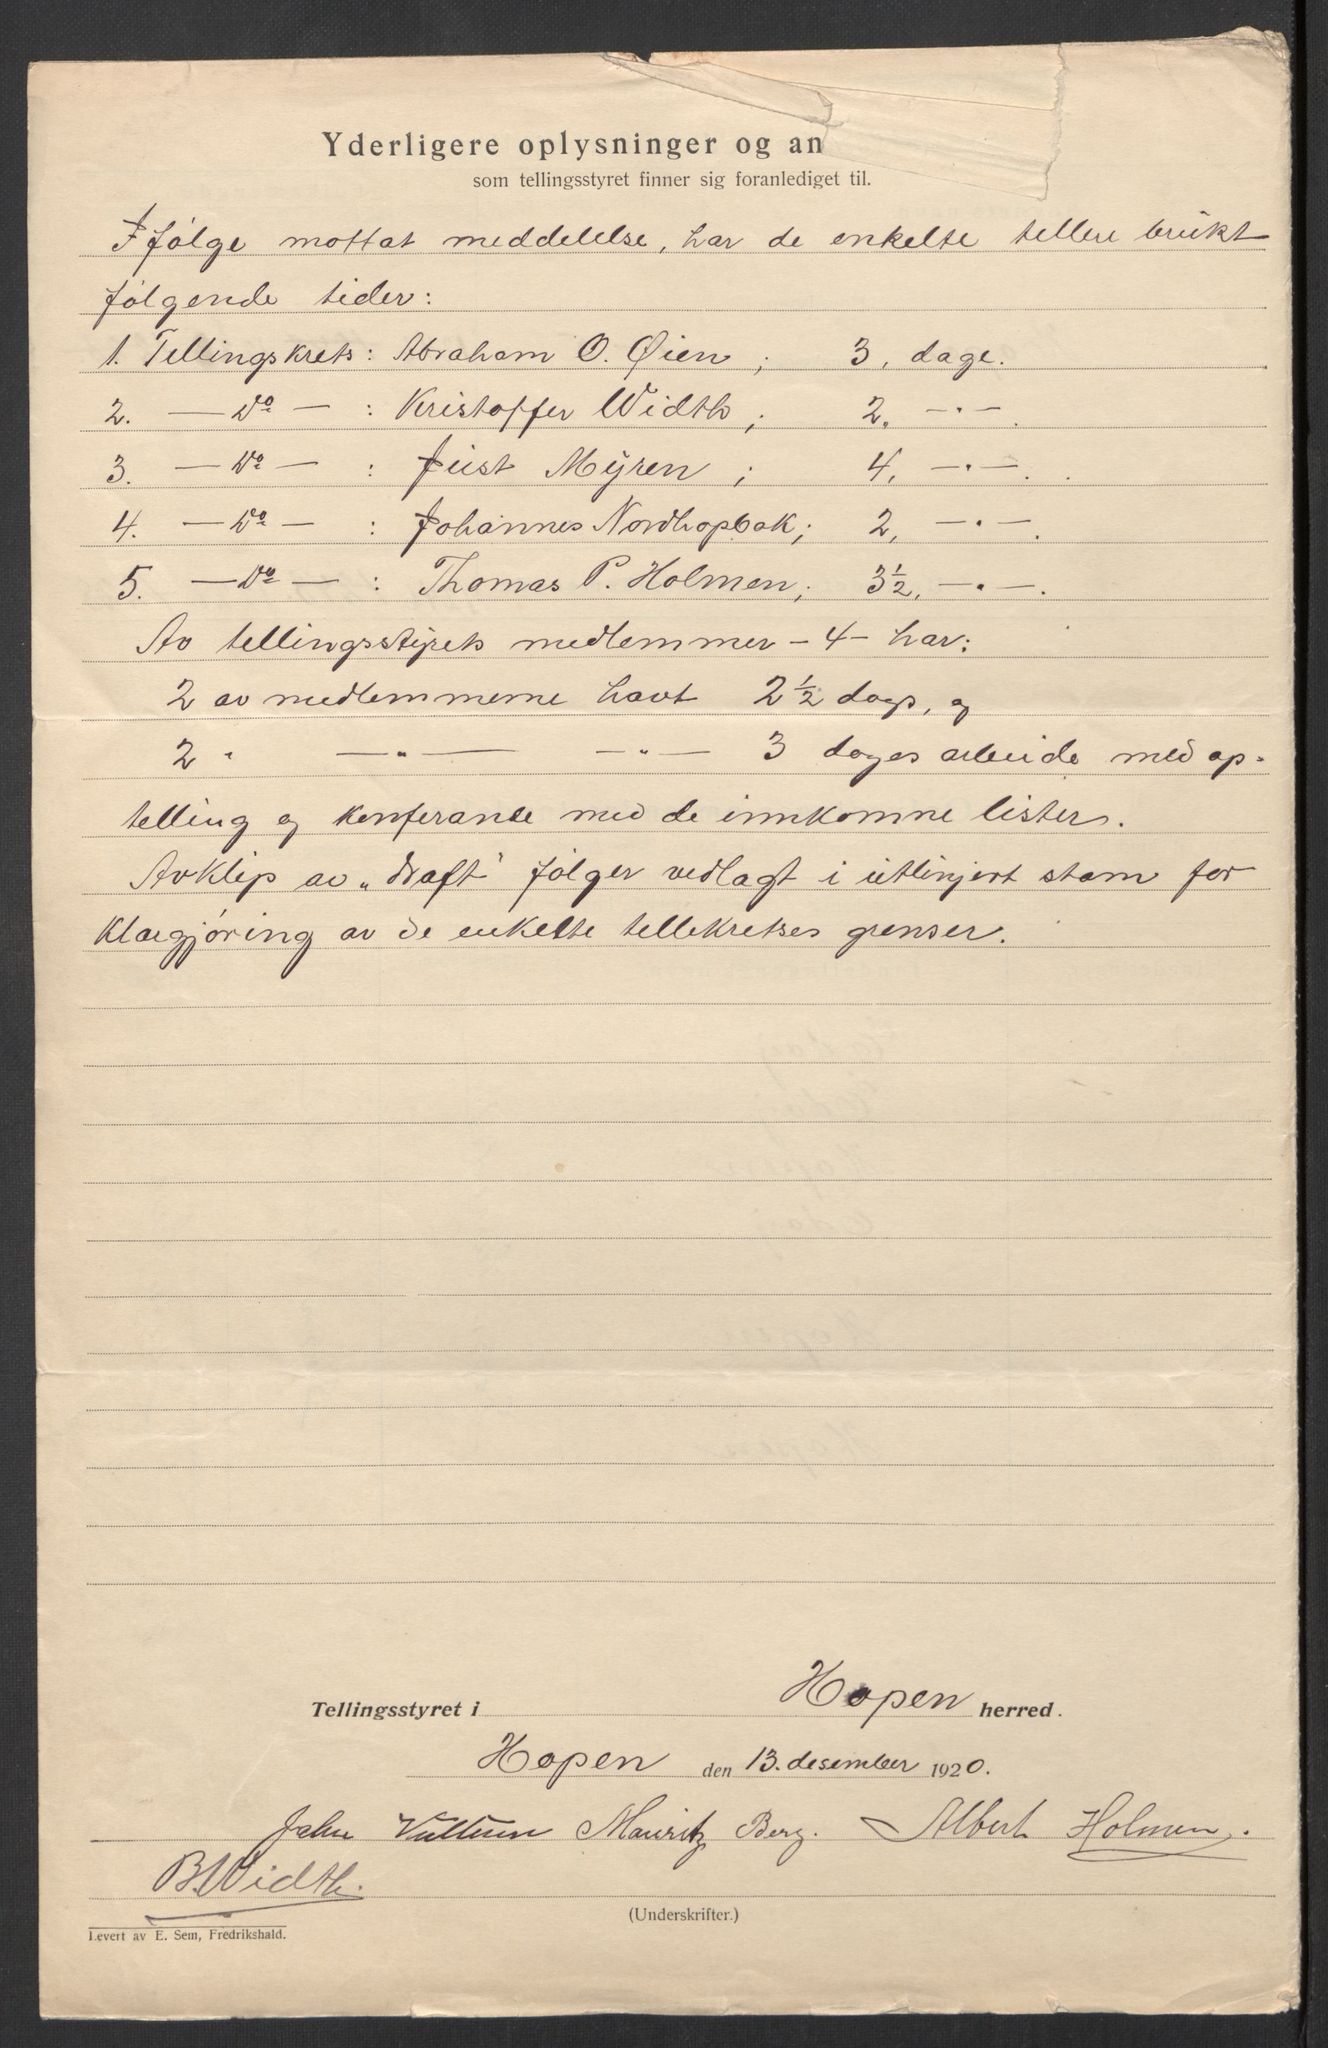 Yderligere oplysninger og an
som tellingsstyret finner sig foranlediget til.
Ifølge mottat meddelelse, har de enkelte tellere brukt
følgende tider:
1. Tellingskrets: Abraham O. Øien; 3, dage.
2. — Do — : Kristoffer Width; 2, —"—.
3. — Do — : Just Myren; 4, —"—.
4. — Do — : Johannes Nordhopbak; 2, —"—.
5. — Do — : Thomas P. Holmen; 3½, —"—.
Av tellingsstyrets medlemmer – 4 – har:
2 av medlemmerne havt 2½ dags, og
2 " —"— —"— 3 dages arbeide med op-
telling og konferanse med de innkomne lister.
Avklip av „draft" følger vedlagt i utlinjert stam for
klargjøring av de enkelte tellekretses grenser.
Tellingsstyret i Hopen herred.
Hopen den 13. desember 1920.
John Mauritz Berg. Albert Holmen.
B. Width.
(Underskrifter.)
Levert av E. Sem, Fredrikshald.